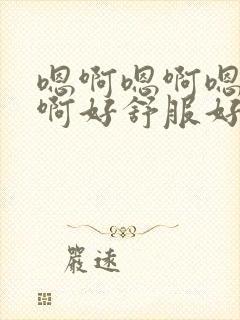 嗯啊嗯啊嗯
啊好舒服好
嚴逺